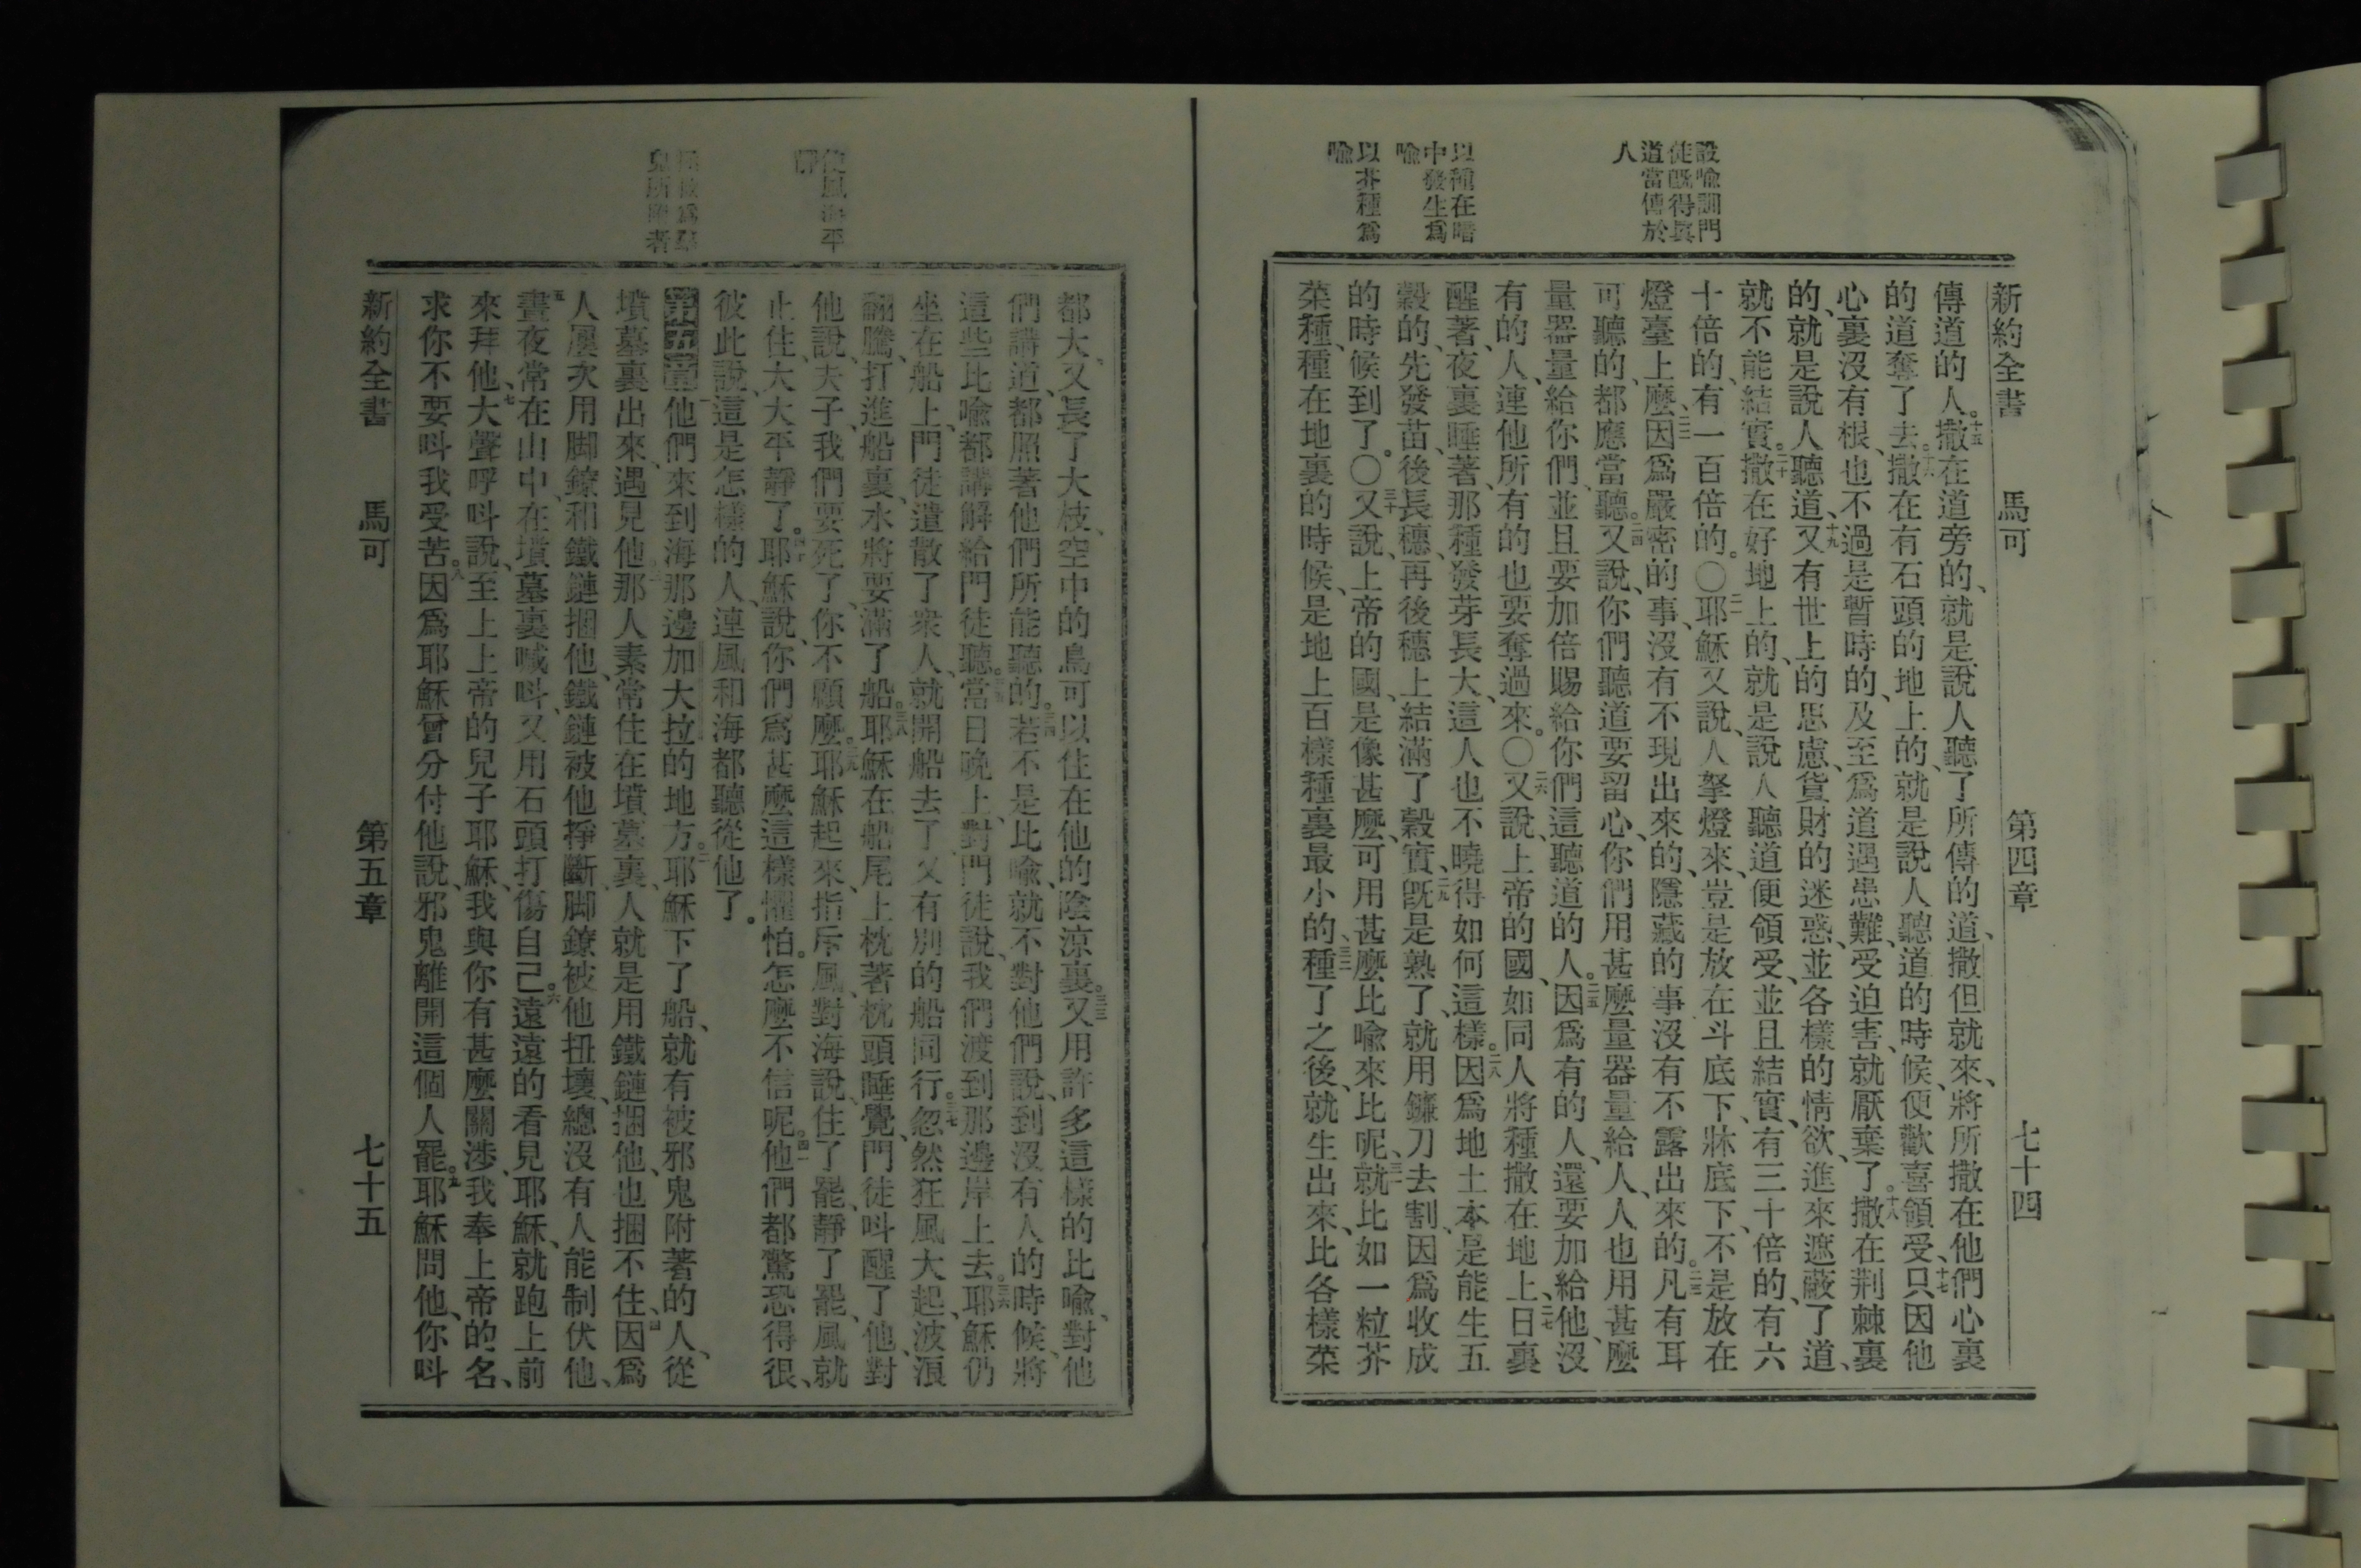 設喻訓門
徒旣得眞
道當傳於
人
以種在暗
中發生爲
喻
以芥種爲
喻
新約全書 馬可 第四章 七十四
傳道的人。十五撒在道旁的、就是說人聽了所傳的道、撒但就來、將所撒在他們心裏
的道奪了去。十六撒在有石頭的地上的、就是說人聽道的時候、便歡喜領受、十七只因他
心裏沒有根、也不過是暫時的、及至爲道遇患難、受迫害、就厭棄了。十八撒在荆棘裏
的、就是說人聽道、十九又有世上的思慮、貨財的迷惑、並各樣的情欲、進來遮蔽了道、
就不能結實。二十撒在好地上的、就是說人聽道便領受、並且結實、有三十倍的、有六
十倍的、有一百倍的。〇二一耶穌又說、人拏燈來、豈是放在斗底下、牀底下、不是放在
燈臺上麼、二二因爲嚴密的事、沒有不現出來的、隱藏的事沒有不露出來的。二三凡有耳
可聽的、都應當聽。二四又說、你們聽道要留心、你們用甚麼量器量給人、人也用甚麼
量器量給你們、並且要加倍賜給你們這聽道的人。二五因爲有的人、還要加給他、沒
有的人、連他所有的也要奪過來。〇二六又說、上帝的國、如同人將種撒在地上、二七日裏
醒著、夜裏睡著、那種發芽長大、這人也不曉得如何這樣。二八因爲地土本是能生五
穀的、先發苗、後長穗、再後穗上結滿了穀實、二九旣是熟了、就用鐮刀去割、因爲收成
的時候到了。〇三十又說、上帝的國、是像甚麼、可用甚麼比喻來比呢、三一就比如一粒芥
菜種、種在地裏的時候、是地上百樣種裏最小的、三二種了之後、就生出來、比各樣菜
使風海平
靜
都大、又長了大枝、空中的鳥可以住在他的陰涼裏。三三又用許多這樣的比喻、對他
們講道、都照著他們所能聽的。三四若不是比喻、就不對他們說、到沒有人的時候、將
這些比喻都講解給門徒聽。三五當日晚上、對門徒說、我們渡到那邊岸上去。三六耶穌仍
坐在船上、門徒遣散了衆人、就開船去了、又有別的船同行。三七忽然狂風大起、波浪
翻騰、打進船裏、水將要滿了船。三八耶穌在船尾上枕著枕頭睡覺、門徒呌醒了他、對
他說、夫子、我們要死了、你不顧麼。三九耶穌起來、指斥風、對海說、住了罷、靜了罷、風就
止住、大大平靜了。四十耶穌說、你們爲甚麼這樣懼怕。怎麼不信呢。四一他們都驚恐得很、
彼此說、這是怎樣的人、連風和海都聽從他了。
第五章 一他們來到海那邊加大拉的地方。二耶穌下了船、就有被邪鬼附著的人、從
墳墓裏出來、遇見他、三那人素常住在墳墓裏、人就是用鐵鏈捆他、也捆不住、四因爲
人屢次用脚鐐和鐵鏈捆他、鐵鏈被他掙斷、脚鐐被他扭壞、總沒有人能制伏他、
五晝夜常在山中、在墳墓裏喊呌、又用石頭打傷自己。六遠遠的看見耶穌、就跑上前
來拜他、七大聲呼呌說、至上上帝的兒子耶穌、我與你有甚麼關涉、我奉上帝的名、
求你不要呌我受苦。八因爲耶穌曾分付他說、邪鬼離開這個人罷。九耶穌問他、你呌
新約全書 馬可 第五章 七十五